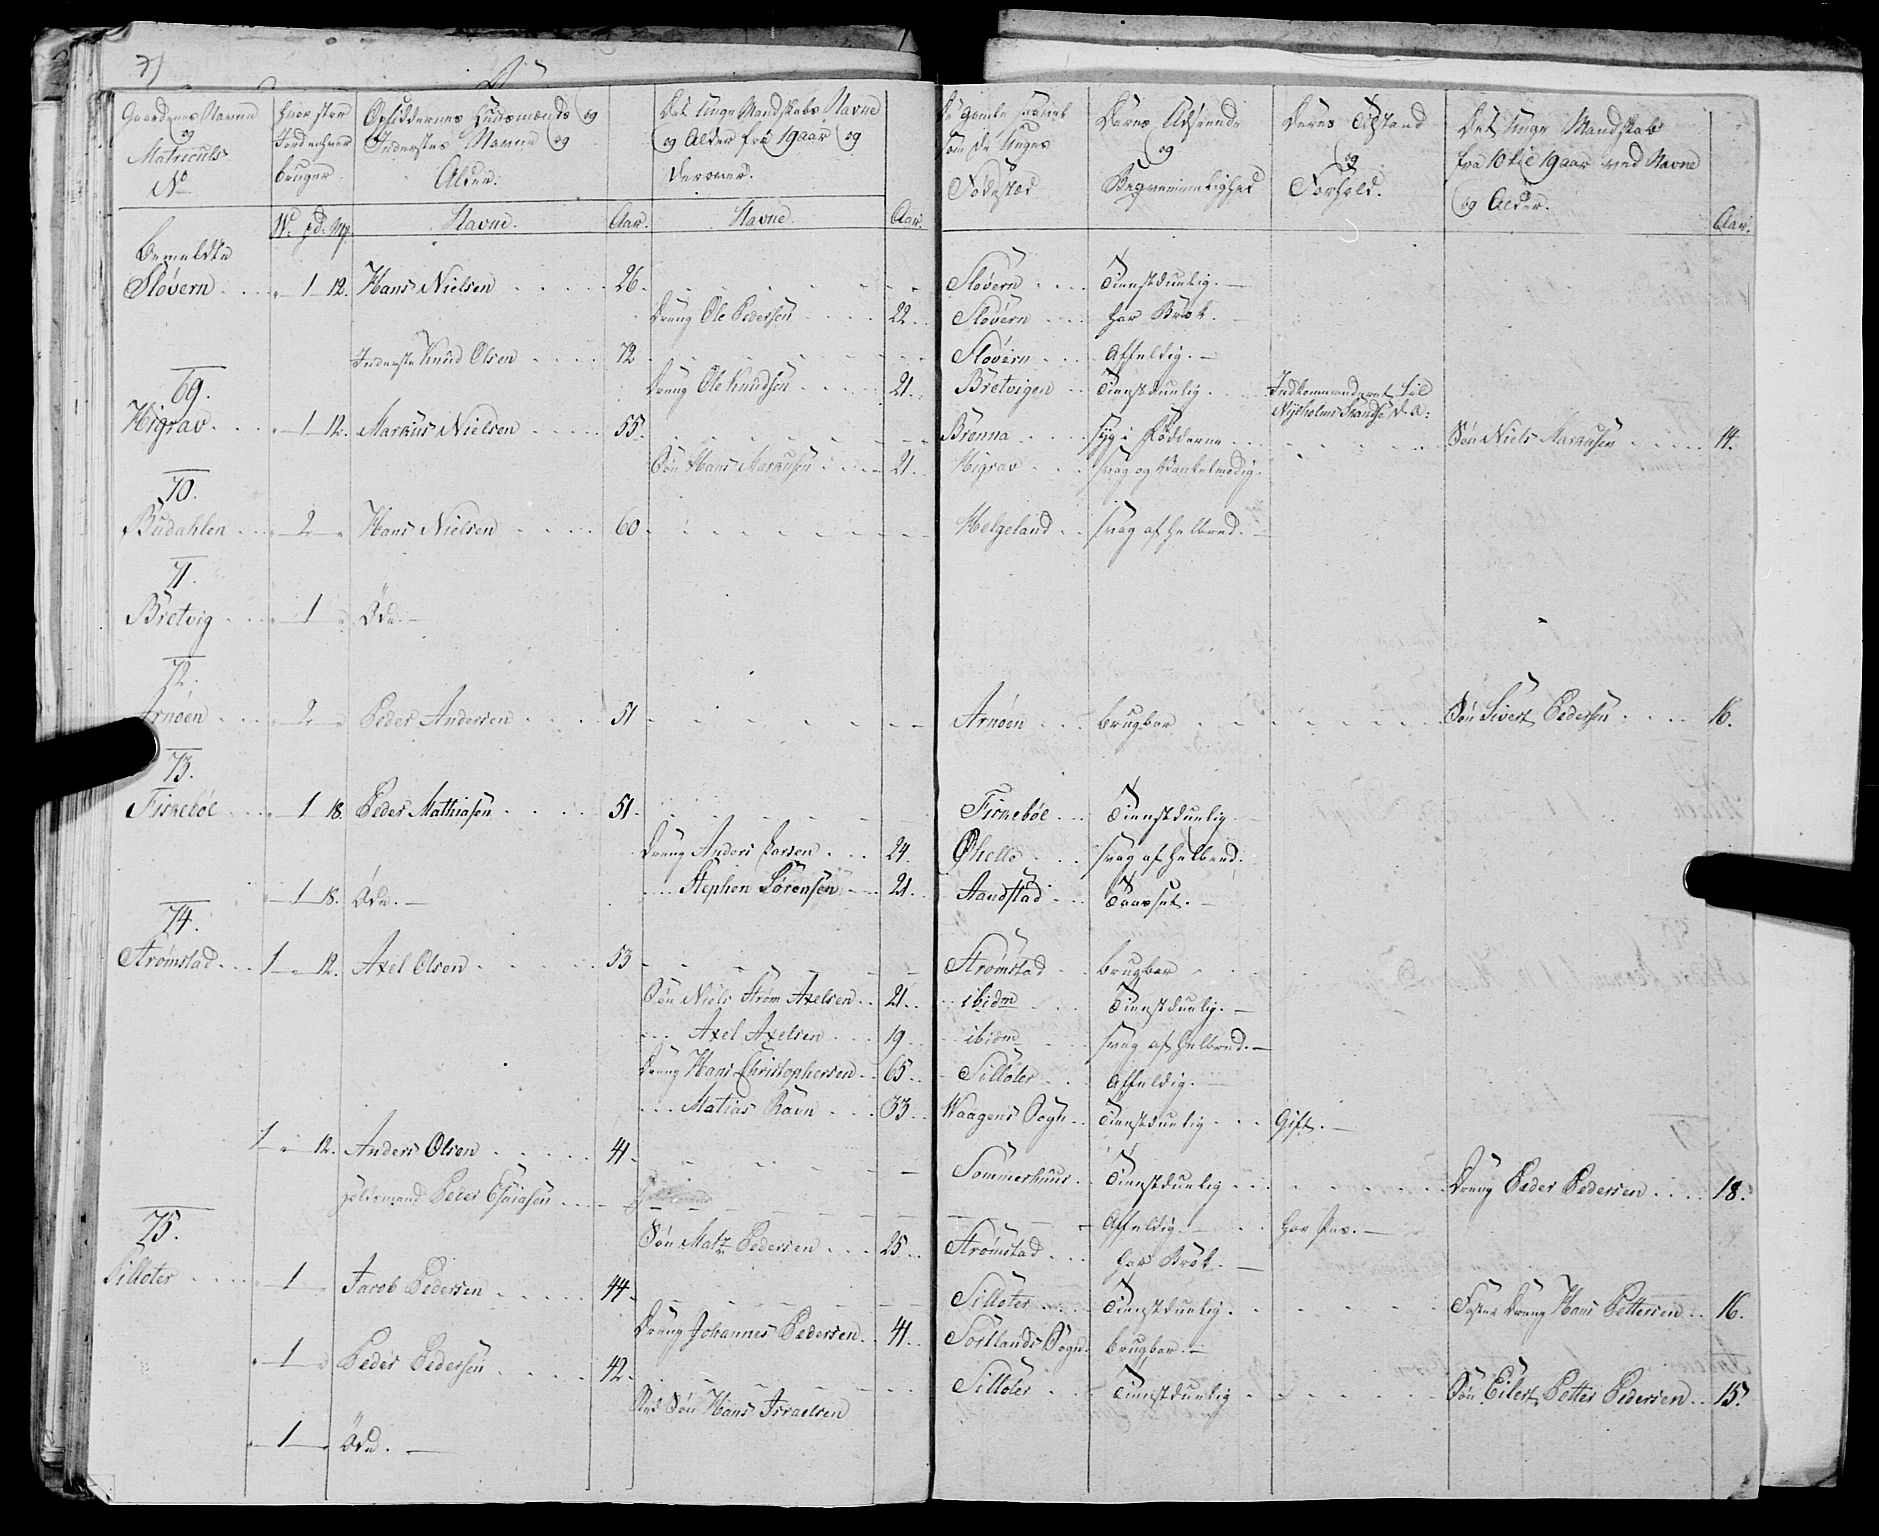 71
Gaardenes Navne og Matriculs No | hvor stor Jord enhver bruger | Opsiddernes Huusmænds og Inderstes Navne og Alder. | Det Unge Mandskabs Navne og Alder fra 19 aar og derover. | De gamle saavel som de Unges Fødested | Deres Udseende og Beqvemmelighed | Deres Tilstand og Forhold. | Det Unge Mandskab fra 10 til 19 aar ved Navne og Alder.
W. pd. Mk. | Navne. | Aar. | Navne. | Aar. | Aar.
bemeldte
Sløvern | 1 12. | Hans Nielsen | 26. | Sløvern | Tienstdunlig.
Dreng Ole Pedersen | 22. | Sløvern | har Brok.
Inderste Knud Olsen | 72. | Sløvern | Affeldig.
Dreng Ole Knudsen | 21. | Bretvigen | Tienstdunlig | Indkommanderet til Nyeholms Skandse
69.
Higrav | 1 12. | Markus Nielsen | 55. | Brenna | syg i fødderne | Søn Niels Markusen | 14.
Søn Hans Markusen | 21. | Higrav | svag og Vankelmodig.
70.
Budahlen | 2 | Hans Nielsen | 60. | Helgeland | svag af helbred.
71.
Bretvig | 1 | Øde.
72.
Arnøen | 2 | Peder Andersen | 51. | Arnøen | brugbar | Søn Sivert Pedersen | 16.
73.
Fiskebøl | 1 18. | Peder Mathiasen | 51. | Fiskebøl | Tienstdunlig
Dreng Anders Larsen | 24. | Qhelle | svag af helbred.
Stephen Sørensen | 21. | Sandstad
1 18. | Øde.
74.
Strømstad | 1 12. | Axel Olsen | 53. | Strømstad | brugbar
Søn Niels Strøm Axelsen | 21. | ibidm | Tienstdunlig.
Axel Axelsen | 19. | ibidm | svag af helbred.
Dreng Hans Christophersen | 65. | Silloter | Affeldig.
Matias Ravn | 33. | Waagens Sogn | Tienstdunlig | Gift.
1 12. | Anders Olsen | 41. | Sommerhuus | Tienstdunlig | Dreng Peder Pedersen | 18.
Huusmand Peder Esaiasen | Affeldig. | har Pas.
Søn Matz Pedersen | 25. | Strømstad | har Brok.
75.
Silloter | 1 | Jacob Pedersen | 44. | Silloter | Tienstdunlig. | Foster Dreng Hans Pettersen | 16.
Dreng Johannes Pedersen | 41. | Sortlands Sogn | brugbar.
1 | Peder Pedersen | 42. | Silloter | Tienstdunlig | Søn Eilert Petter Pedersen | 15.
Søn Hans Israelsen
1 | Øde.